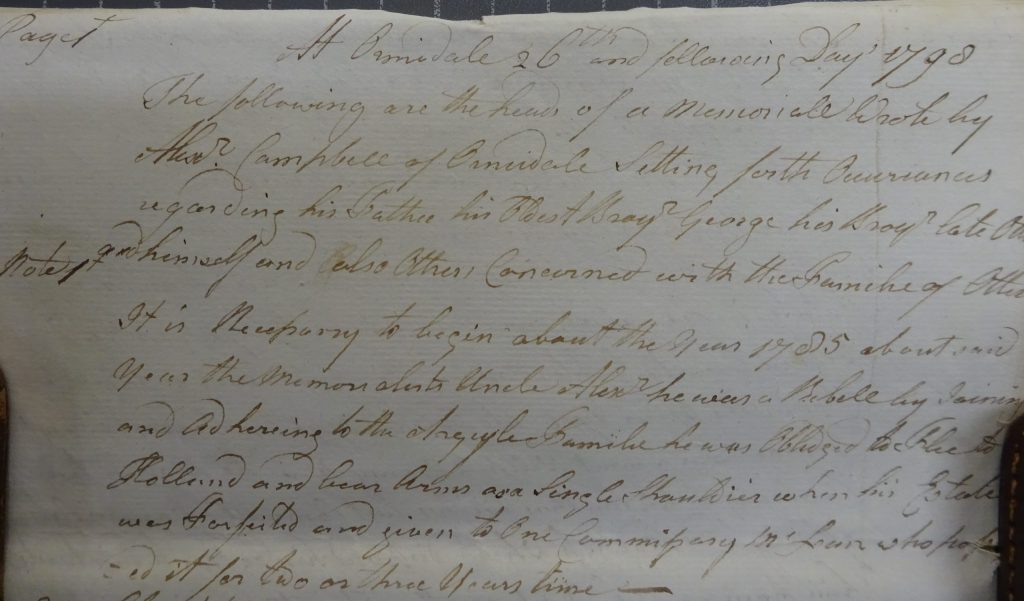 Page 1
At Ormidale 26th and following Days 1798
The following are the heads of a Memoriall Wrote by
Alexr. Campbell of Ormidale Setting forth Occuriances
regarding his Father his Eldest Broyr. George his Broyr. late
Note 1 and himself and also Others Concerned with the Familie of Otter
It is Necessary to begin about the Year 1785 about said
Year the Memorialists Uncle Alexr. he was a Rebell by Joining
and Adhereing to the Argyle Familie he was Obledged to Flee to
Holland and bear Arms as a Single Shouldier when his Estate
was Forfited and given to One Commissary Mc Lean who
-ed it for two or three Years time